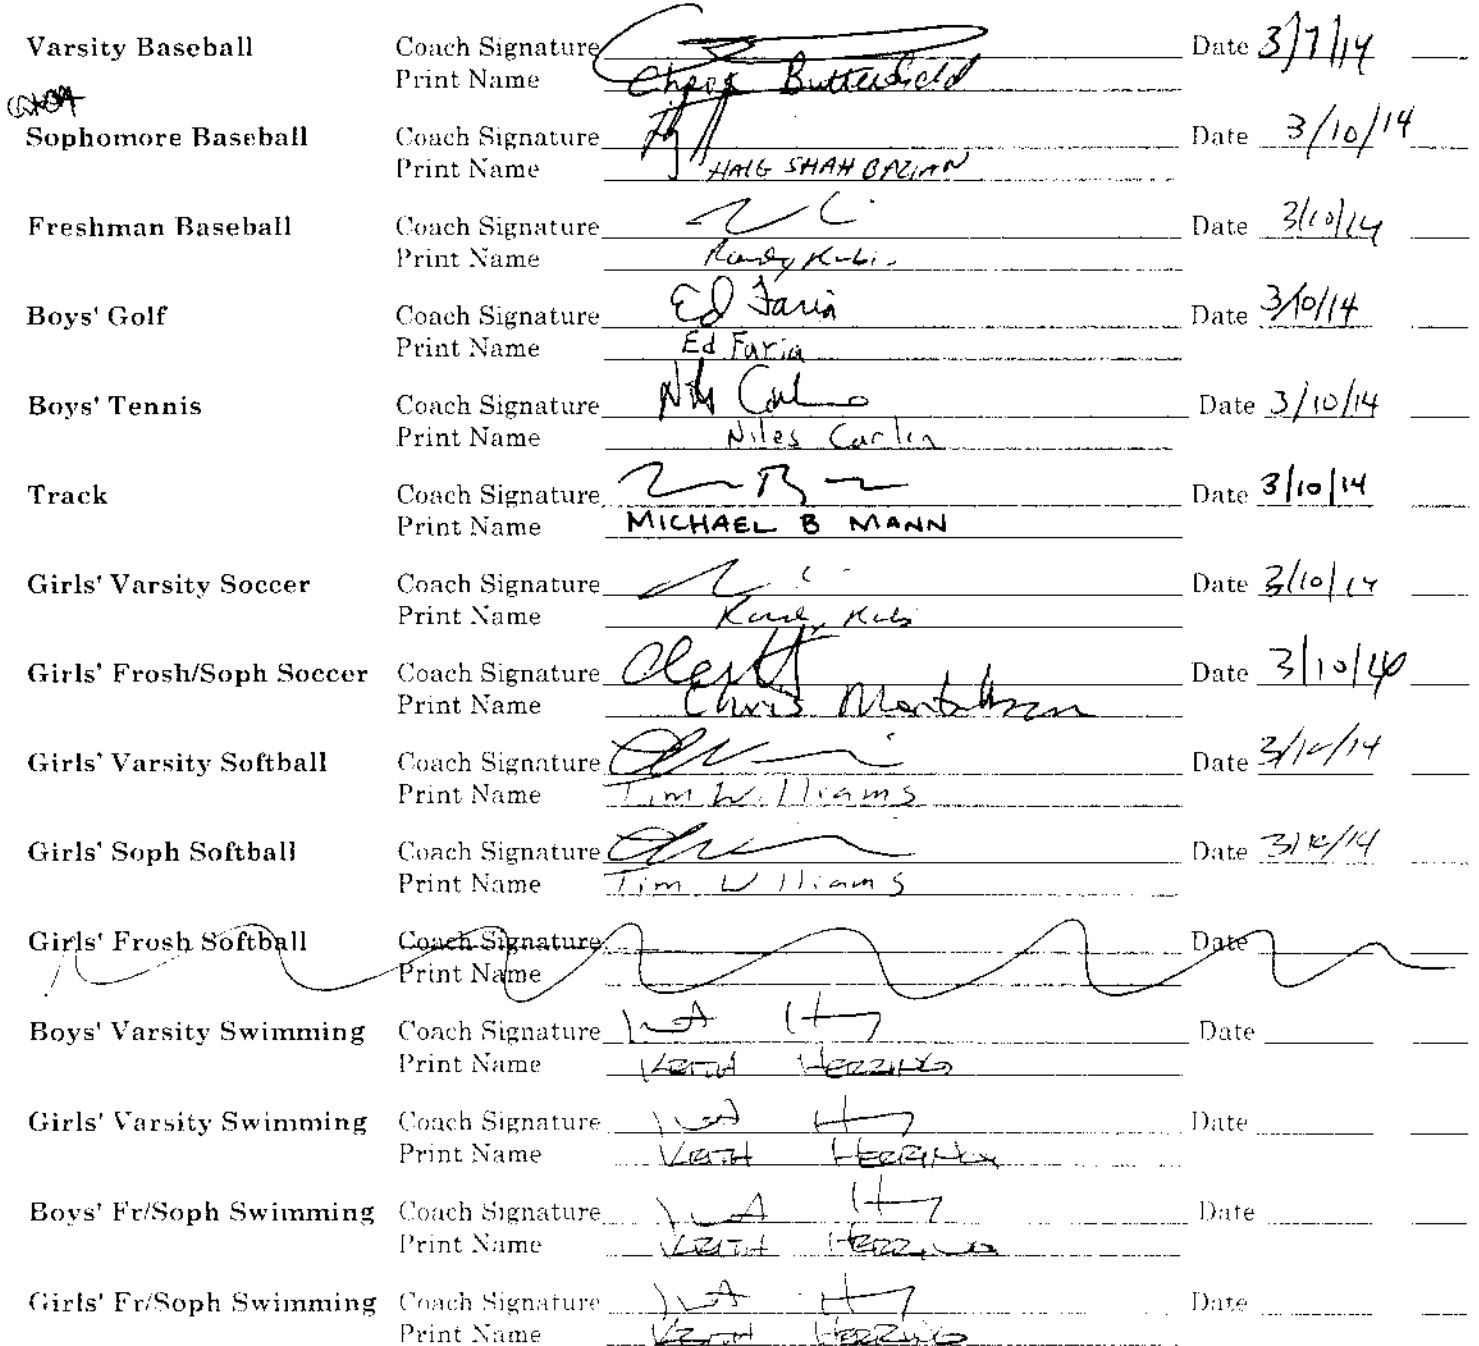 Varsity Baseball Coach Signature Date 3/7/14
Print Name Butterfield
Sophomore Baseball Coach Signature Date 3/10/14
Print Name HAIG SHAHBAZIAN
Freshman Baseball Coach Signature Date 3/10/14
Print Name Randy Kubi
Boys' Golf Coach Signature Ed Faria Date 3/10/14
Print Name Ed Faria
Boys' Tennis Coach Signature Date 3/10/14
Print Name Niles Carlin
Track Coach Signature Date 3/10/14
Print Name MICHAEL B MANN
Girls' Varsity Soccer Coach Signature Date 3/10/14
Print Name Randy Kubi
Girls' Frosh/Soph Soccer Coach Signature Date 3/10/14
Print Name Chris
Girls' Varsity Softball Coach Signature Date 3/10/14
Print Name Tim Williams
Girls' Soph Softball Coach Signature Date 3/10/14
Print Name Tim Williams
Girls' Frosh Softball Coach Signature Date
Print Name
Boys' Varsity Swimming Coach Signature Date
Print Name KEITH HERRING
Girls' Varsity Swimming Coach Signature Date
Print Name KEITH HERRING
Boys' Fr/Soph Swimming Coach Signature Date
Print Name KEITH HERRING
Girls' Fr/Soph Swimming Coach Signature Date
Print Name KEITH HERRING